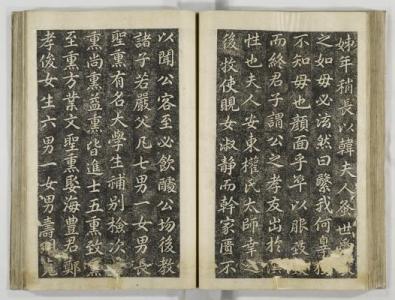 姊年稍長以韓夫人蚤世
之如母必泫然曰繄我何辜
不知毋也顔面手年以服
而終君子謂公之孝友出於
性也夫人安東權氏太師幸之
後牧使晛女淑静而幹家匱不
以聞公客至必飲醵公場後教
諸子若嚴父凡七男一女男長
聖熏有名大學生補别檢次
熏尚熏益熏皆進士五熏致熏
至熏方業文聖熏娶海豊君鄭
孝俊女生六男一女男壽